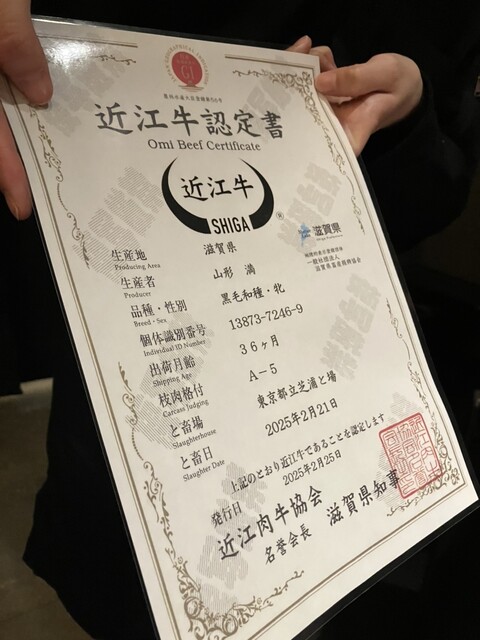 GI
近江牛認定書
Omi Beef Certificate
近江牛
SHIGA
®
滋賀県
一般社団法人
滋賀県畜産振興協会
生産地 滋賀県
Producing Area
生産者 山形 満
Producer
品種・性別 黒毛和種・牝
Breed・Sex
個体識別番号 13873-7246-9
Individual ID Number
出荷月齢 36ヶ月
Shipping Age
枝肉格付 A-5
Carcass Judging
と畜場 東京都立芝浦と場
Slaughterhouse
と畜日 2025年2月21日
Slaughter Date
上記のとおり近江牛であることを認定します
発行日 2025年2月25日
近江肉牛協会
名誉会長 滋賀県知事